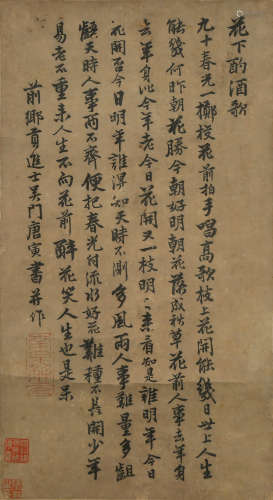 花下酌酒歌
九十春光一擲梭花前拍手唱高歌枝上花開能幾日世上人生
能幾何昨朝花勝今朝好明朝花落成秋草花前人事去年身
去年身比今年老今日花開又一枝明〻來看知是誰明年今日
花開否今日明年誰得知天時不測多風雨人事難量多齟
齬天時人事兩不齊便把春光付流水好花難種不長開少年
易老不重來人生不向花前醉花笑人生也是呆
前鄉貢進士吳門唐寅書并作